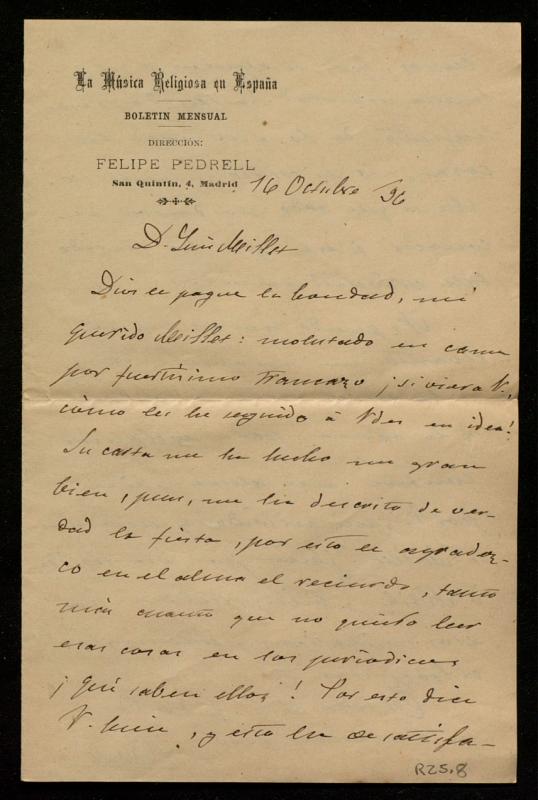 La Música Religiosa en España
BOLETIN MENSUAL
DIRECCIÓN:
FELIPE PEDRELL
San Quintín, 4, Madrid
16 Octubre /96
D. Luis Millet
Dios le pague la bondad, mi
querido Millet: molestado en cama
por fuertísimo trancazo ¡si viera V.,
cómo les he seguido á Vdes en idea!
Su carta me ha hecho un gran
bien, pues, me ha descrito de ver-
dad la fiesta, por esto le agradez-
co en el alma el recuerdo, tanto
más cuanto que no quiero leer
esas cosas en los periodicos
¡qué saben ellos! Por esto dice
V. bien, y esto ha de satisfa-
R25.8